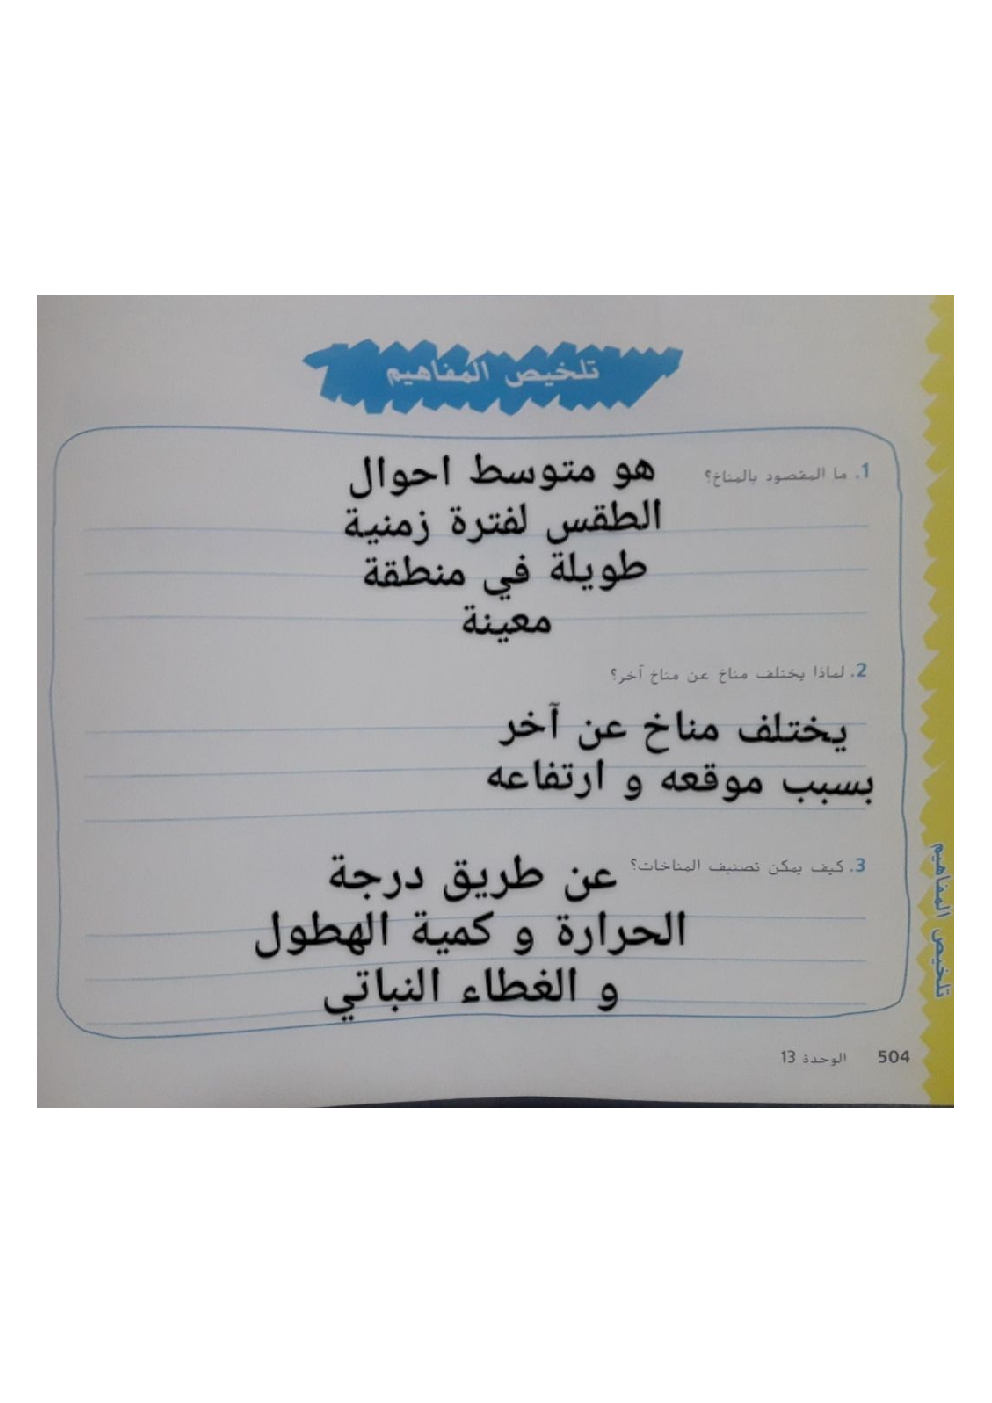 تلخيص المفاهيم
1. ما المقصود بالمناخ؟ هو متوسط احوال
الطقس لفترة زمنية
طويلة في منطقة
معينة
2. لماذا يختلف مناخ عن مناخ آخر؟
يختلف مناخ عن آخر
بسبب موقعه و ارتفاعه
3. كيف يمكن تصنيف المناخات؟ عن طريق درجة
الحرارة و كمية الهطول
و الغطاء النباتي
تلخيص المفاهيم
504 الوحدة 13